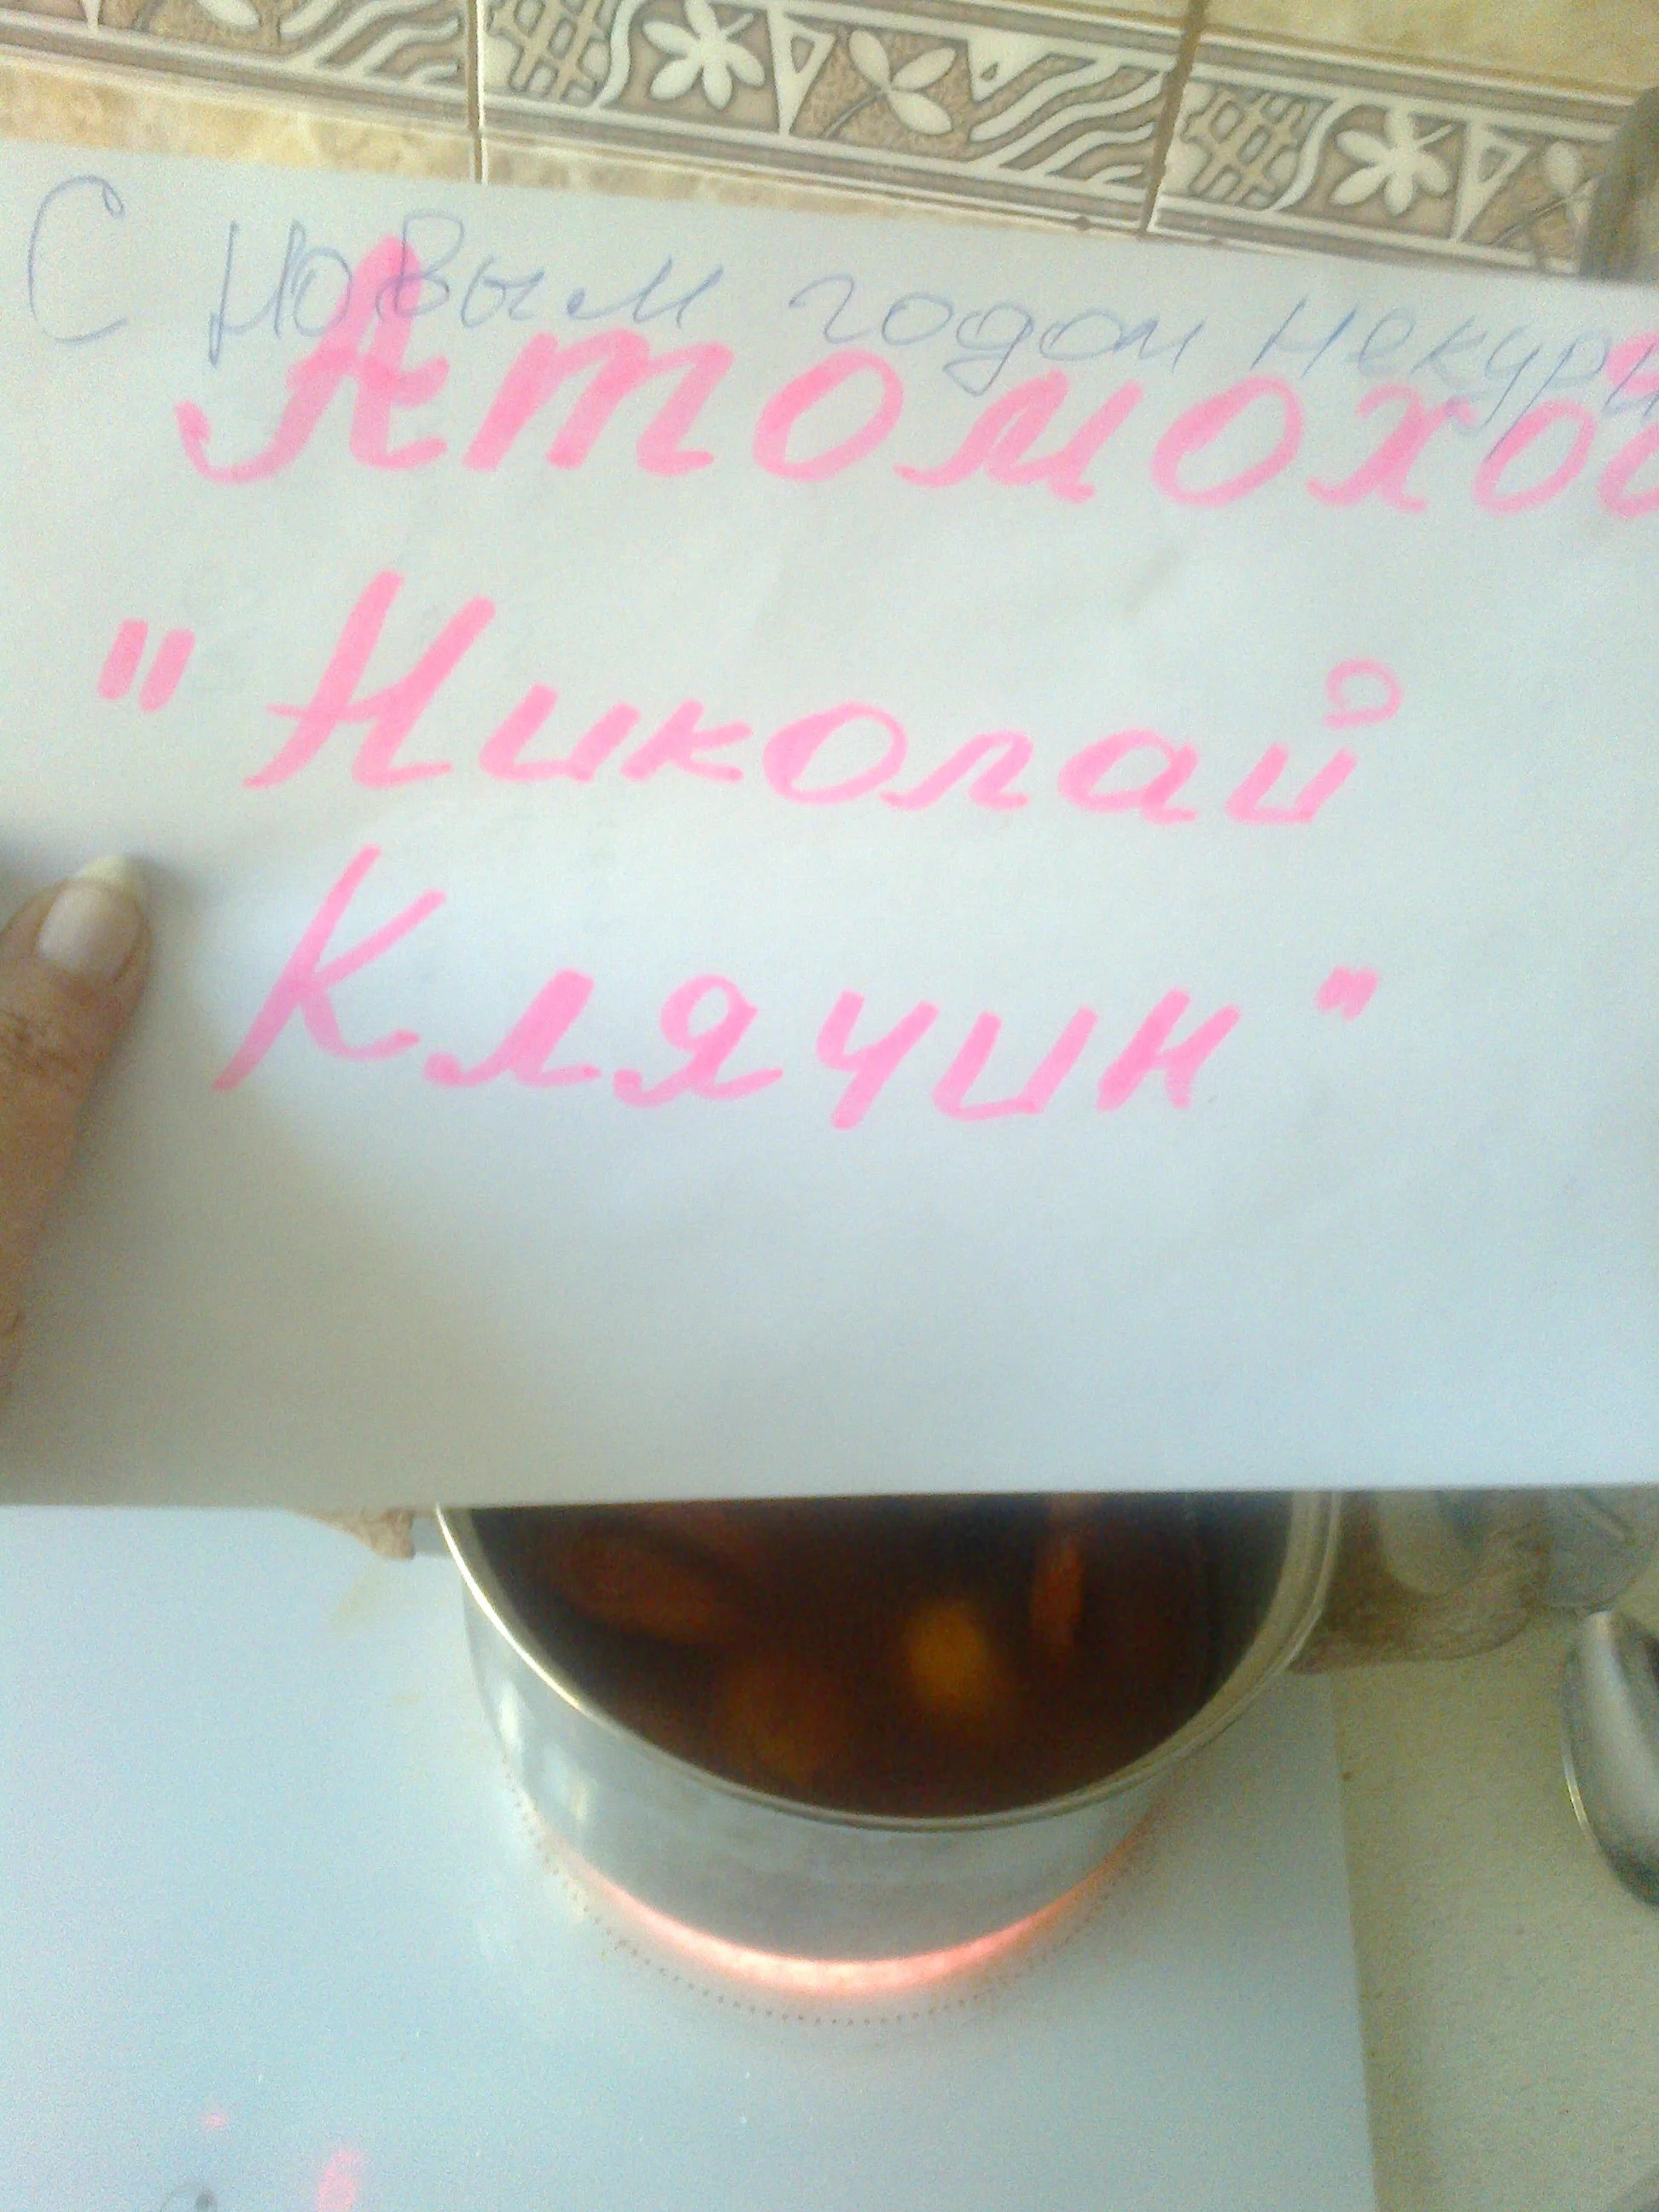 С новым годом некури
Атомохо
"Николай
Клячин"